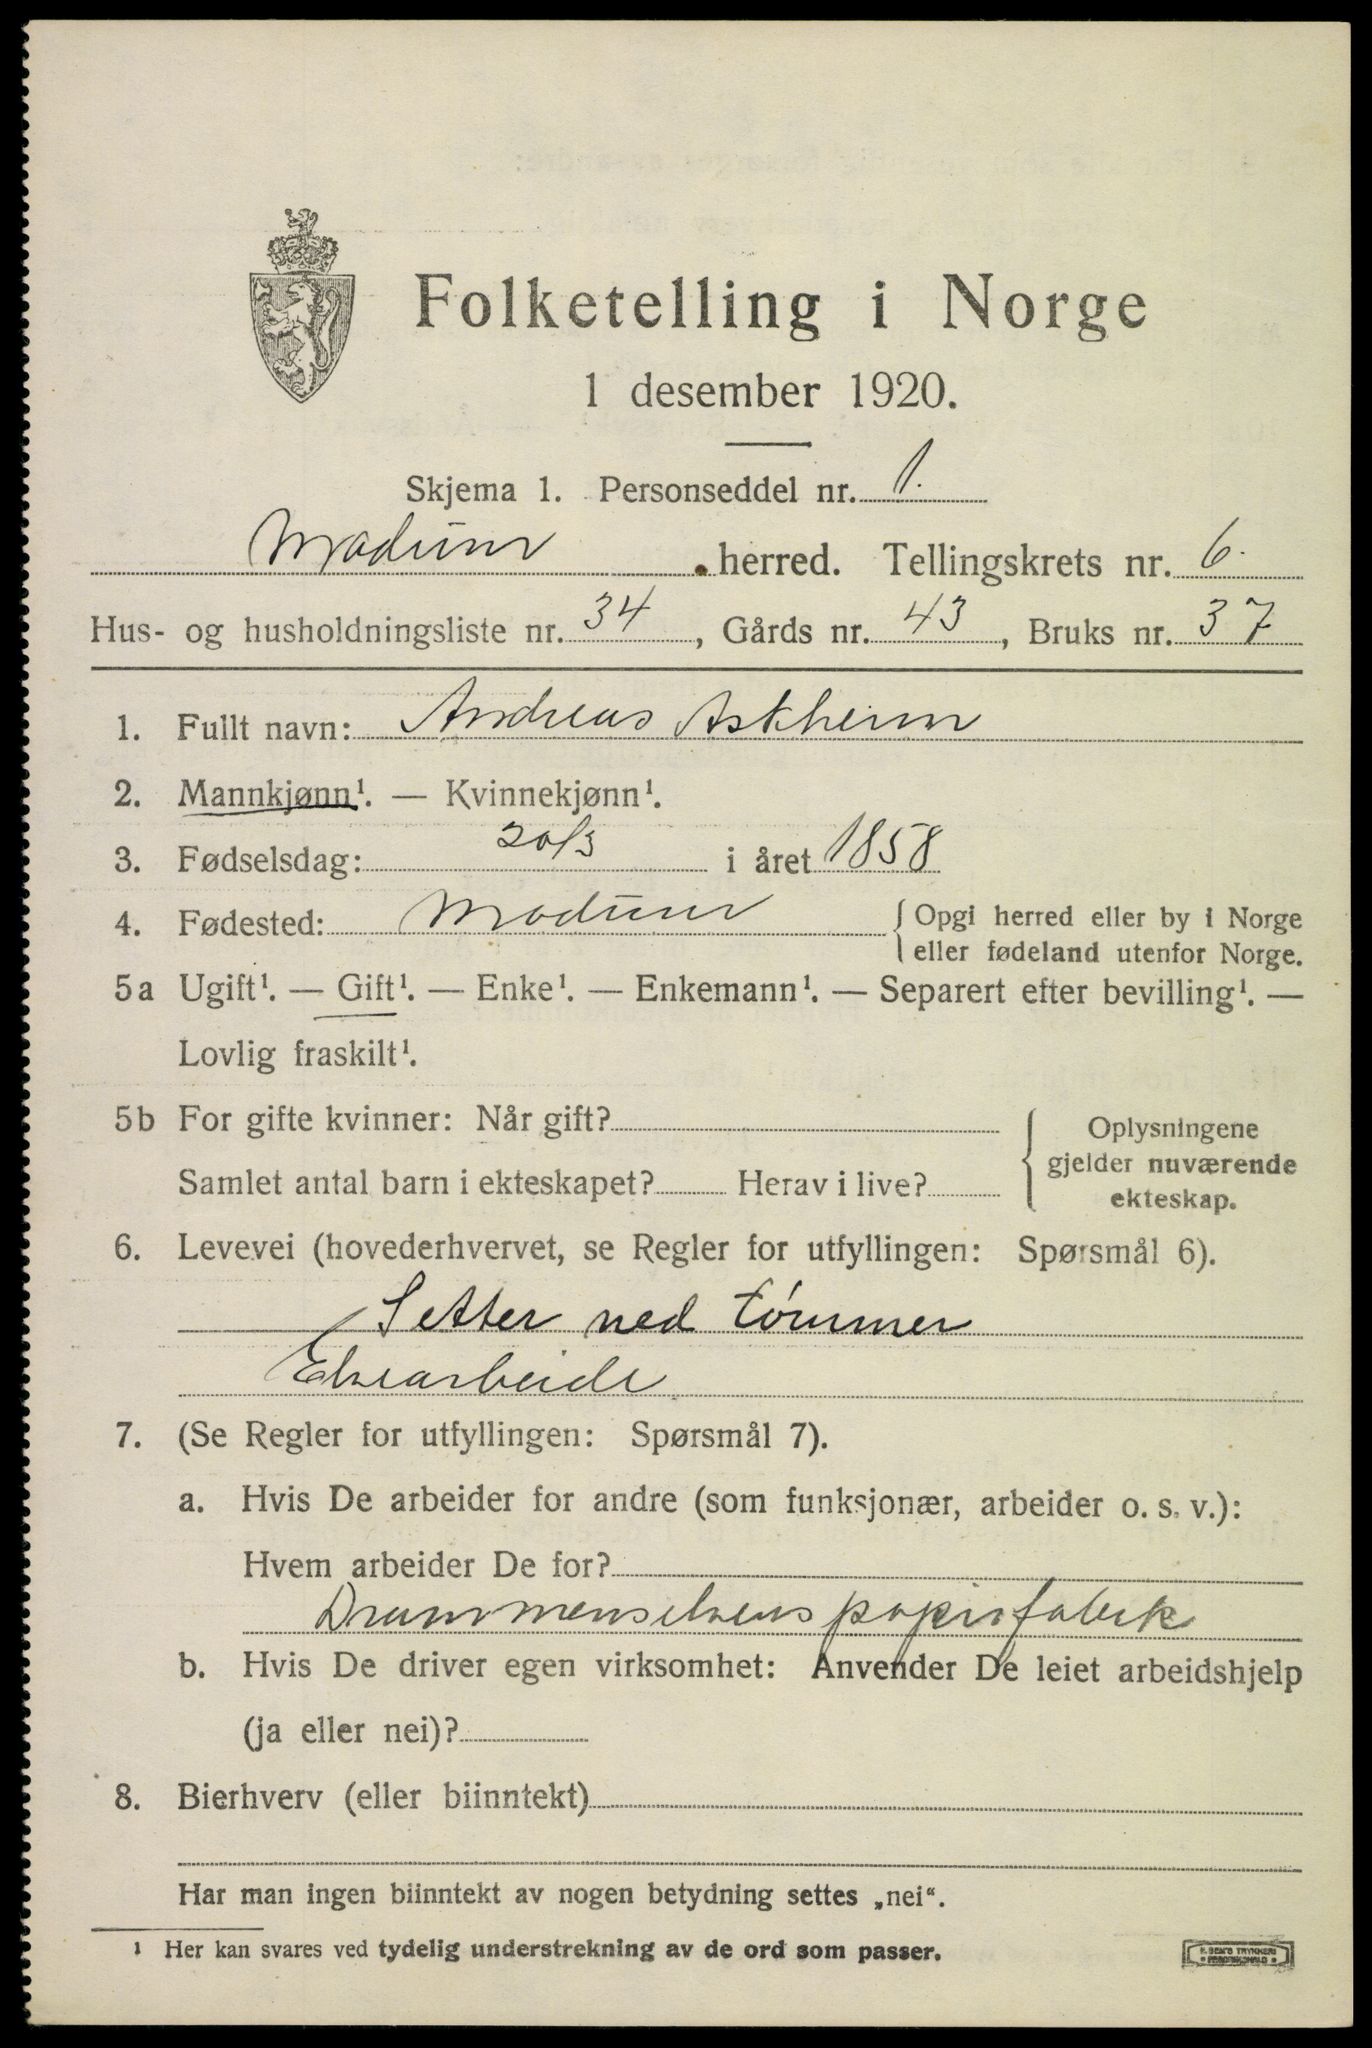 Folketelling i Norge
1 desember 1920.
Skjema 1. Personseddel nr. 1.
Modum herred. Tellingskrets nr. 6.
Hus- og husholdningsliste nr. 34, Gårds nr. 43, Bruks nr. 37
1. Fullt navn: Andreas Askheim
2. Mannkjønn¹. — Kvinnekjønn¹.
3. Fødselsdag: 20/3 i året 1858
4. Fødested: Modum { Opgi herred eller by i Norge
eller fødeland utenfor Norge.
5a Ugift¹. — Gift¹. — Enke¹. — Enkemann¹. — Separert efter bevilling¹. —
Lovlig fraskilt¹.
5b For gifte kvinner: Når gift?
Samlet antal barn i ekteskapet? Herav i live?
Oplysningene
gjelder nuværende
ekteskap.
6. Levevei (hovederhvervet, se Regler for utfyllingen: Spørsmål 6).
Setter ned tømmer
Elvearbeide
7. (Se Regler for utfyllingen: Spørsmål 7).
a. Hvis De arbeider for andre (som funksjonær, arbeider o. s. v.):
Hvem arbeider De for?
Drammenselvens papirfabrik
b. Hvis De driver egen virksomhet: Anvender De leiet arbeidshjelp
(ja eller nei)?
8. Bierhverv (eller biinntekt)
Har man ingen biinntekt av nogen betydning settes „nei“.
¹ Her kan svares ved tydelig understrekning av de ord som passer.